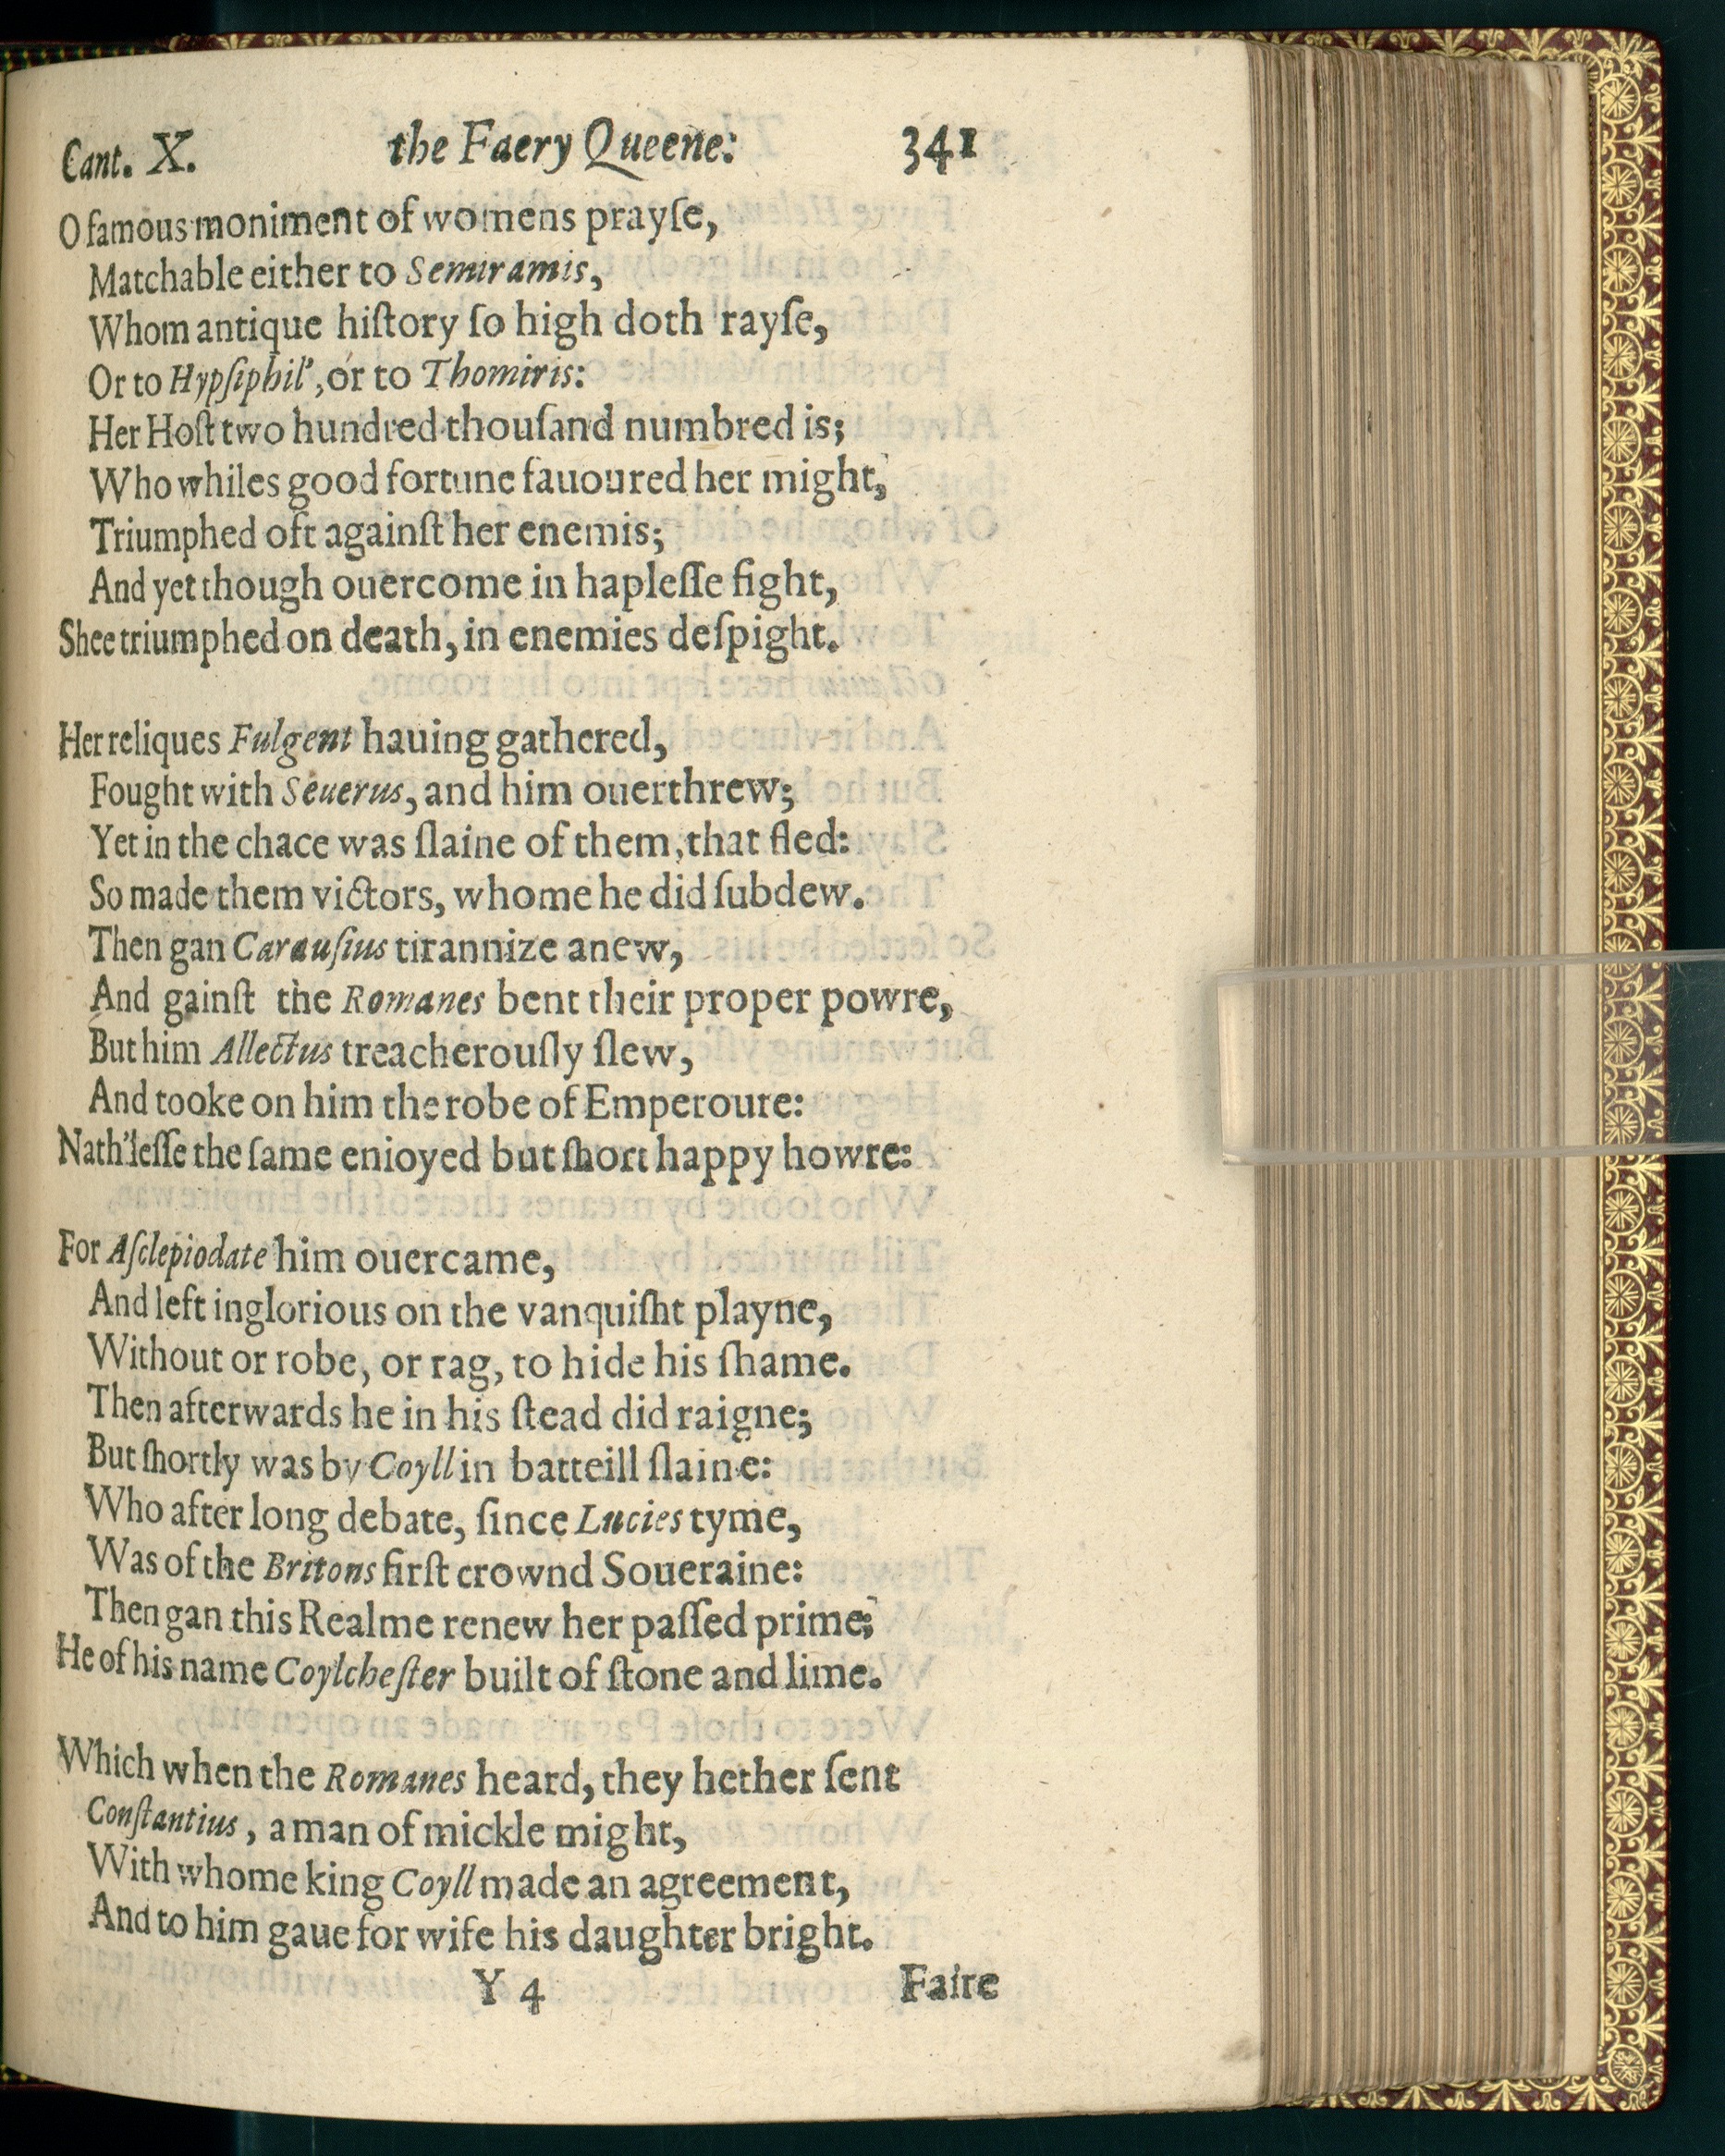 Cant. X. the Faery Queene: 341
O famous moniment of womens prayſe,
Matchable either to Semiramis,
Whom antique hiſtory ſo high doth rayſe,
Or to Hypſiphil', or to Thomiris:
Her Hoſt two hundred thouſand numbred is;
Who whiles good fortune fauoured her might,
Triumphed oft againſt her enemis;
And yet though ouercome in hapleſſe fight,
Shee triumphed on death, in enemies deſpight.
Her reliques Fulgent hauing gathered,
Fought with Seuerus, and him ouerthrew;
Yet in the chace was ſlaine of them, that fled:
So made them victors, whome he did ſubdew.
Then gan Carauſius tirannize anew,
And gainſt the Romanes bent their proper powre,
But him Allectus treacherouſly ſlew,
And tooke on him the robe of Emperoure:
Nath'leſſe the ſame enioyed but ſhort happy howre:
For Aſclepiodate him ouercame,
And left inglorious on the vanquiſht playne,
Without or robe, or rag, to hide his ſhame.
Then afterwards he in his ſtead did raigne;
But ſhortly was by Coyll in batteill ſlaine:
Who after long debate, ſince Lucies tyme,
Was of the Britons firſt crownd Soueraine:
Then gan this Realme renew her paſſed prime;
He of his name Coylcheſter built of ſtone and lime.
Which when the Romanes heard, they hether ſent
Conſtantius, a man of mickle might,
With whome king Coyll made an agreement,
And to him gaue for wife his daughter bright.
Y 4 Faire